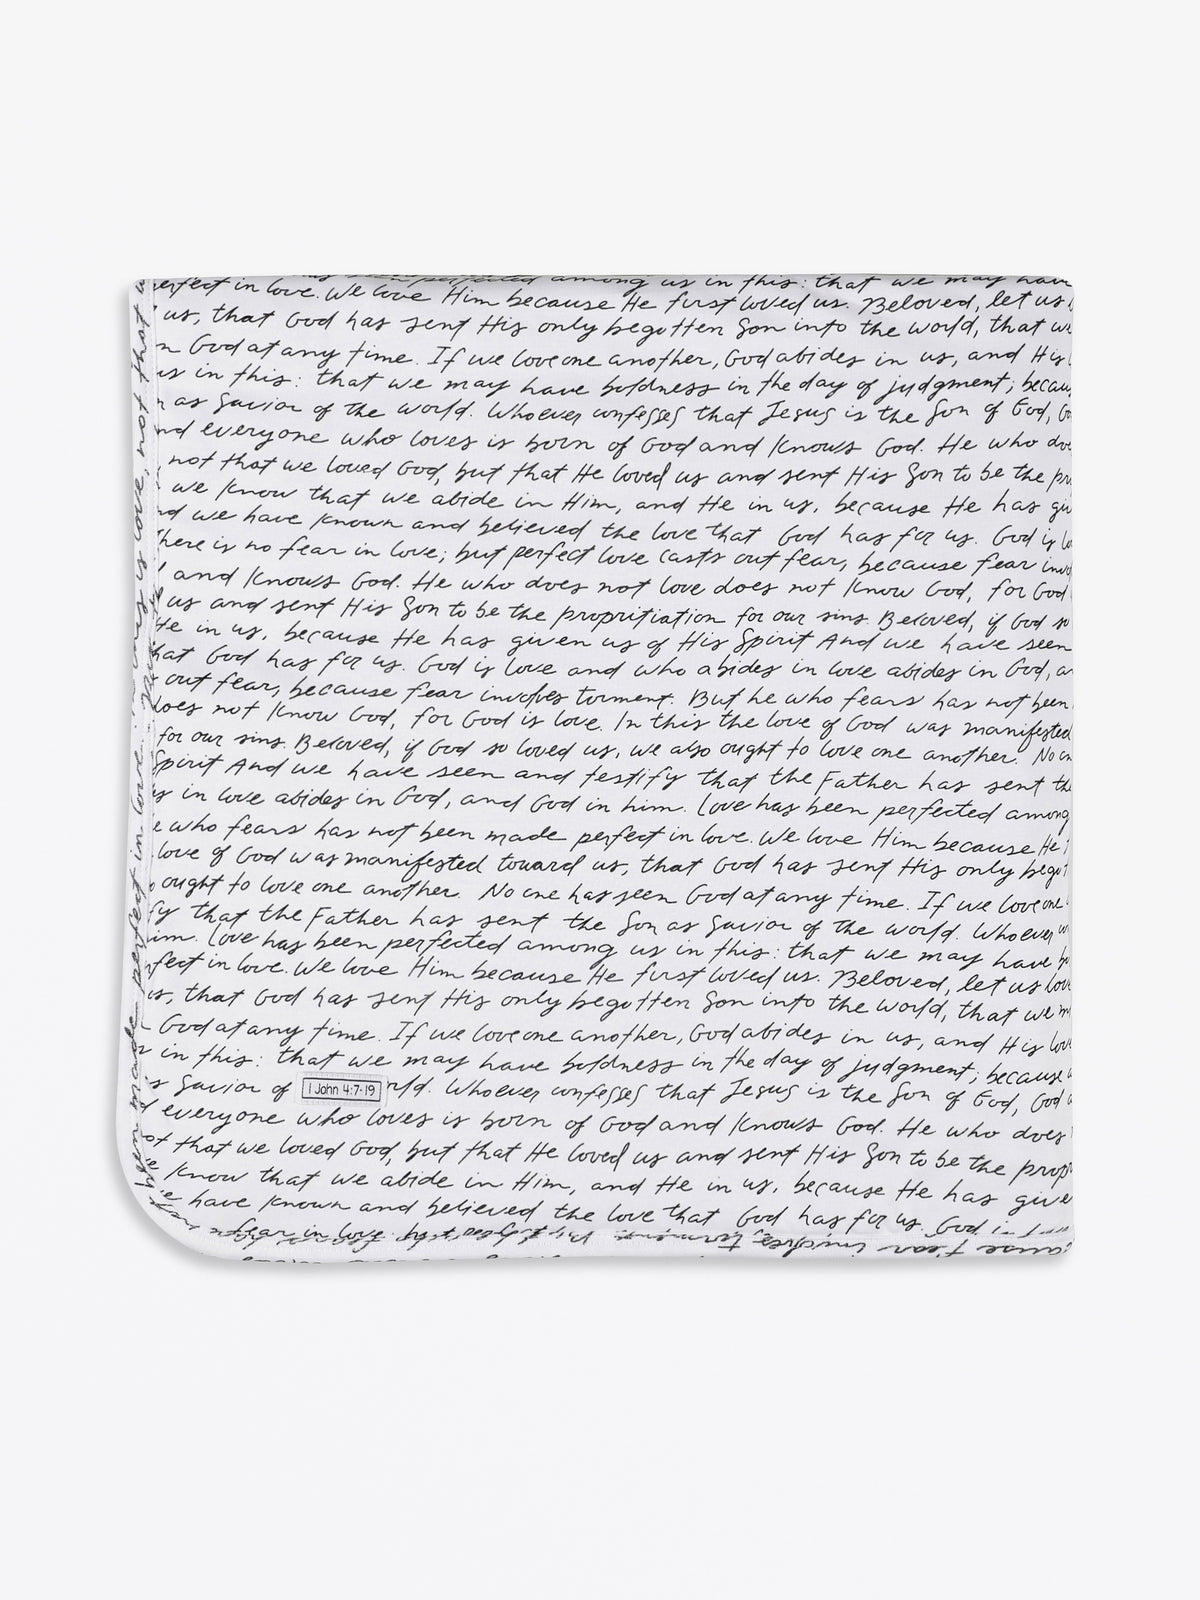 been perfected among us in this: that we may have
perfect in love. We love Him because He first loved us. Beloved, let us
us, that God has sent His only begotten Son into the world, that we
God at any time. If we love one another, God abides in us, and His
us in this: that we may have boldness in the day of judgment; because
as Savior of the world. Whoever confesses that Jesus is the Son of God,
and everyone who loves is born of God and knows God. He who does
not that we loved God, but that He loved us and sent His Son to be the
we know that we abide in Him, and He in us, because He has
and we have known and believed the love that God has for us. God is
There is no fear in love; but perfect love casts out fear, because fear
and knows God. He who does not love does not know God, for God
us and sent His Son to be the propritiation for our sins. Beloved, if God so
He in us, because He has given us of His Spirit And we have seen
that God has for us. God is love and who abides in love abides in God,
out fear, because fear involves torment. But he who fears has not been
does not know God, for God is love. In this the love of God was manifested
for our sins. Beloved, if God so loved us, we also ought to love one another. No
Spirit And we have seen and testify that the Father has sent the
in love abides in God, and God in him. Love has been perfected among
who fears has not been made perfect in love. We love Him because He
love of God was manifested toward us, that God has sent His only
ought to love one another. No one has seen God at any time. If we love one
that the Father has sent the Son as Savior of the world. Whoever
him. Love has been perfected among us in this: that we may have
perfect in love. We love Him because He first loved us. Beloved, let us love
us, that God has sent His only begotten Son into the world, that we
God at any time. If we love one another, God abides in us, and His
in this: that we may have boldness in the day of judgment; because
Savior of
1 John 4:7-19
Whoever confesses that Jesus is the Son of God, God
everyone who loves is born of God and knows God. He who does
not that we loved God, but that He loved us and sent His Son to be the
know that we abide in Him, and He in us, because He has
have known and believed the love that God has for us. God
fear in love
been made perfect in love
is love, not that